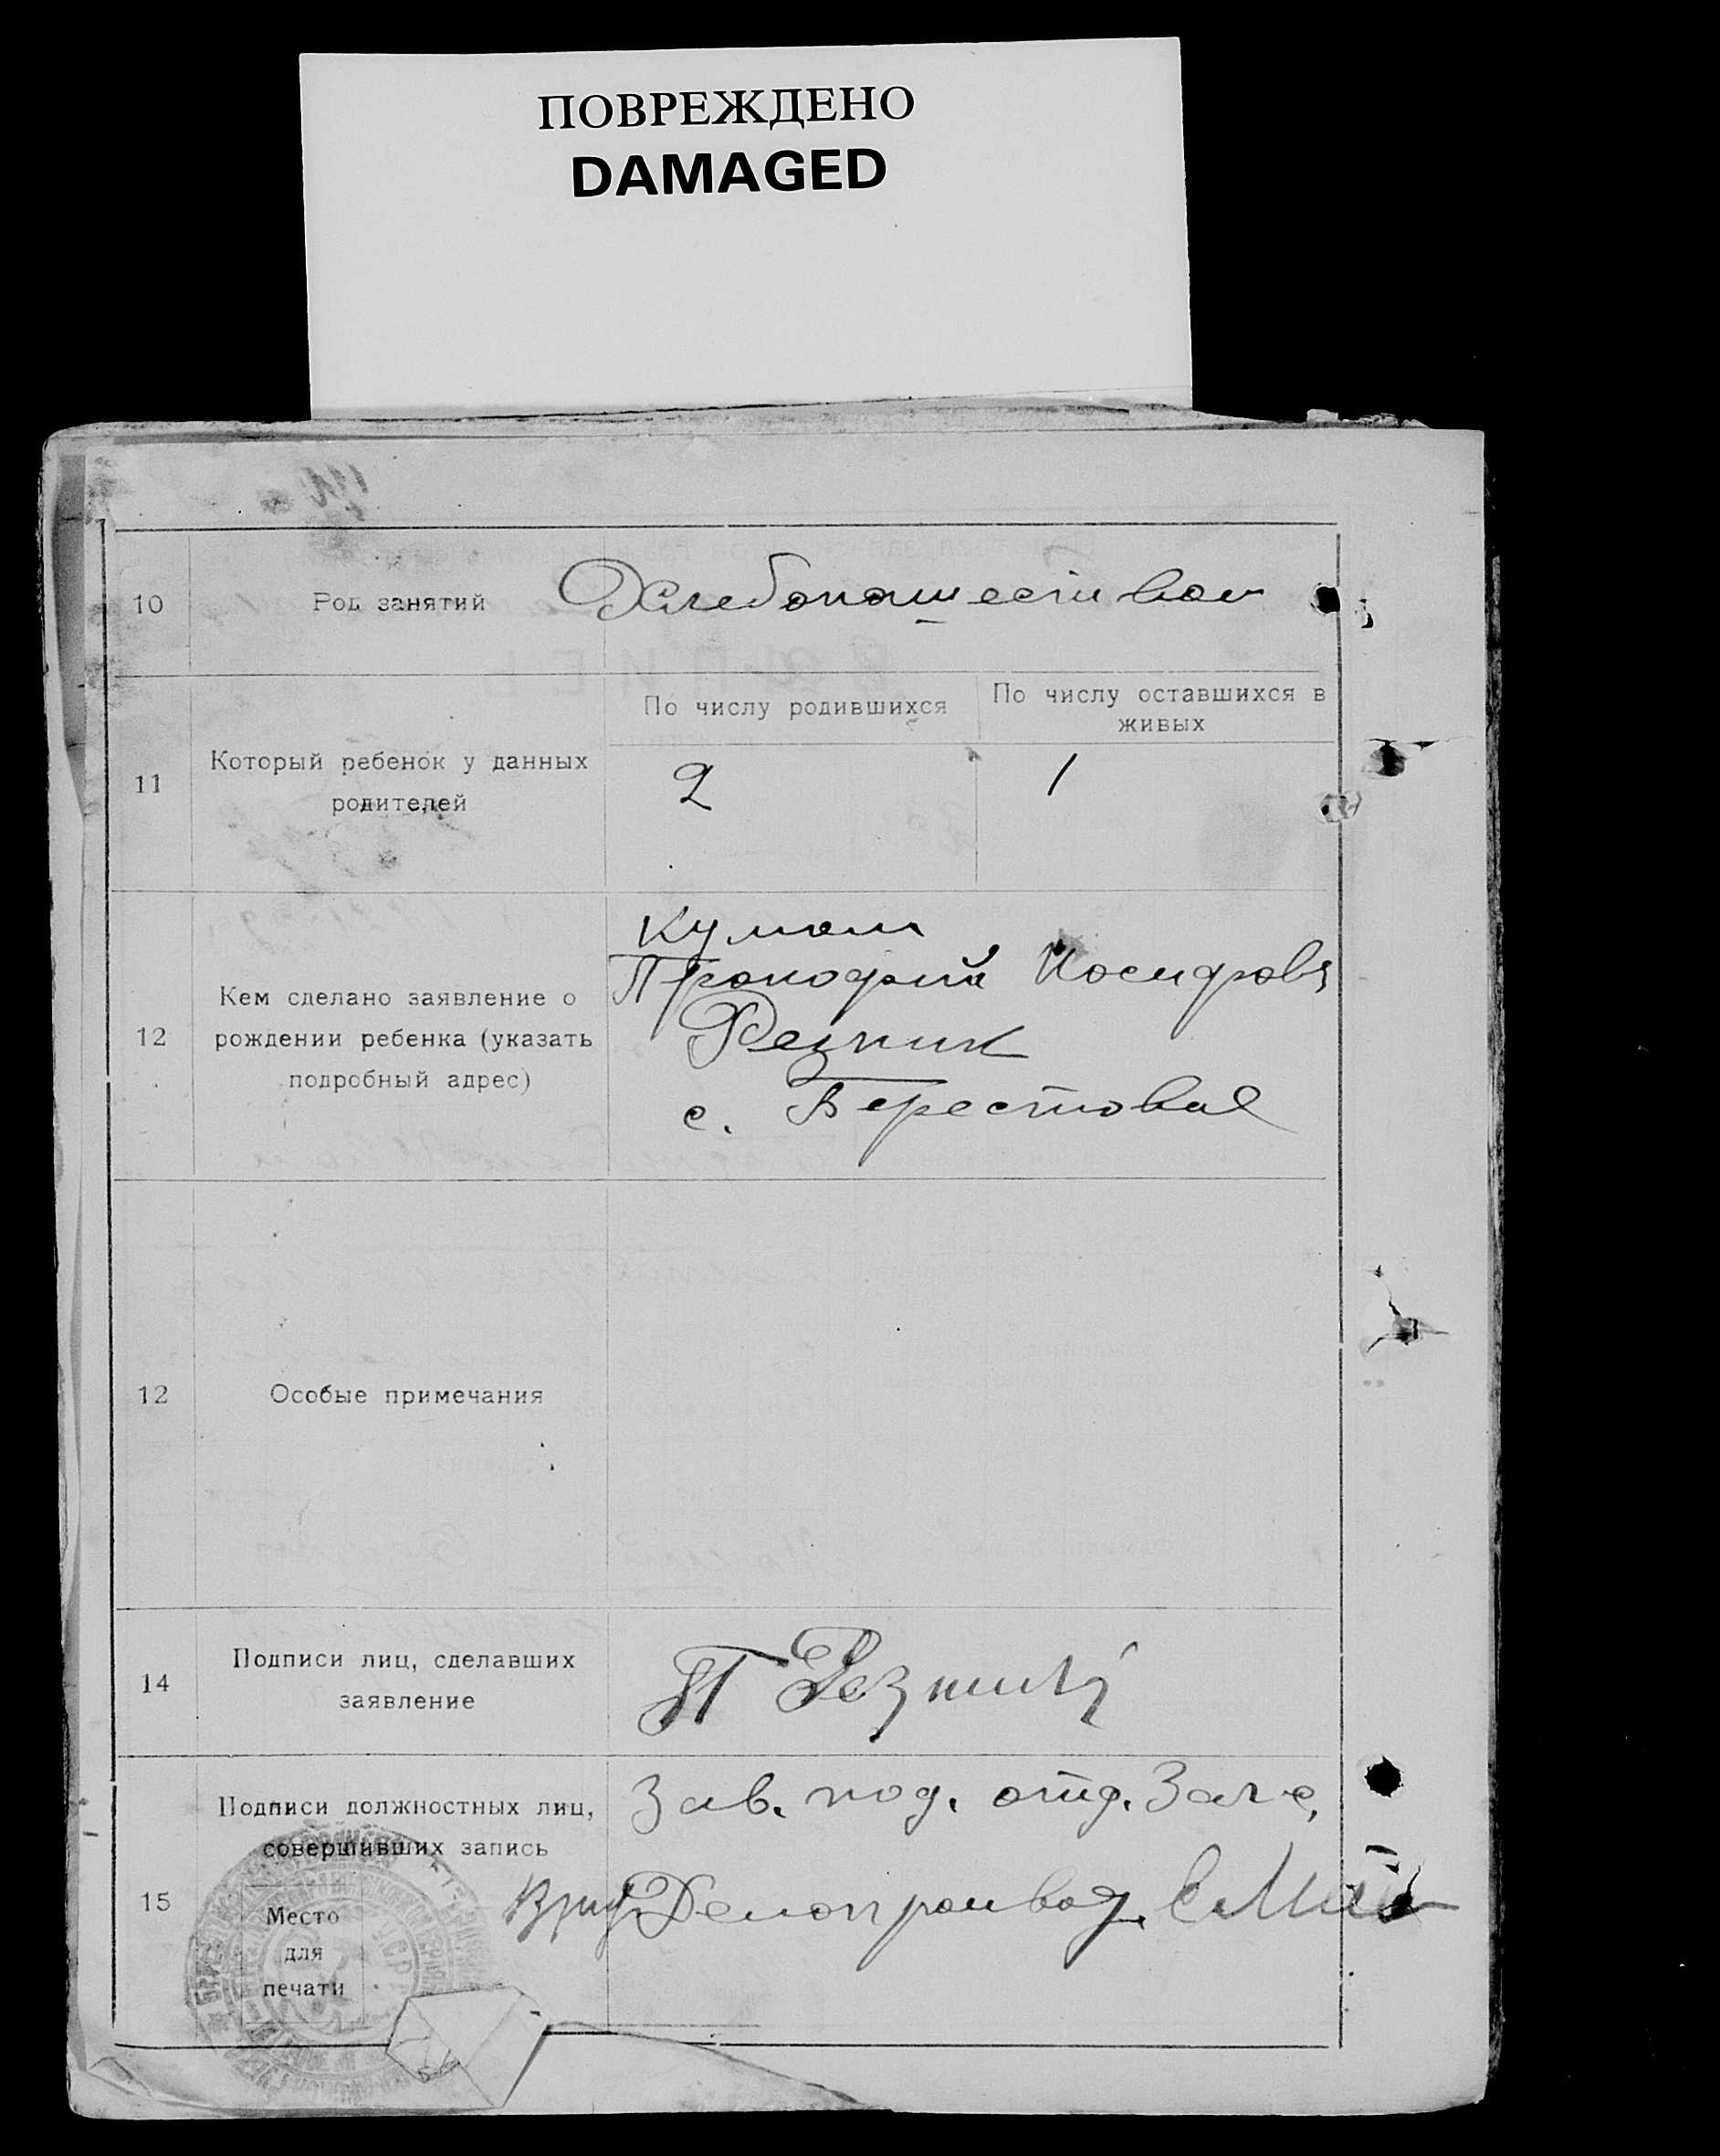 ПОВРЕЖДЕНО
DAMAGED
10 Род занятий Хлебопашеством
11 Который ребенок у данных родителей
По числу родившихся
По числу оставшихся в живых
2 1
12 Кем сделано заявление о
рождении ребенка (указать
подробный адрес)
Кумом
Прокофий Иосифов
Резник
с. Берестовая
12 Особые примечания
14 Подписи лиц, сделавших
заявление
П Резник
15 Подписи должностных лиц,
совершивших запись
Место
для
печати
Зав. под. отд. Загс
Врид Делопроивод.